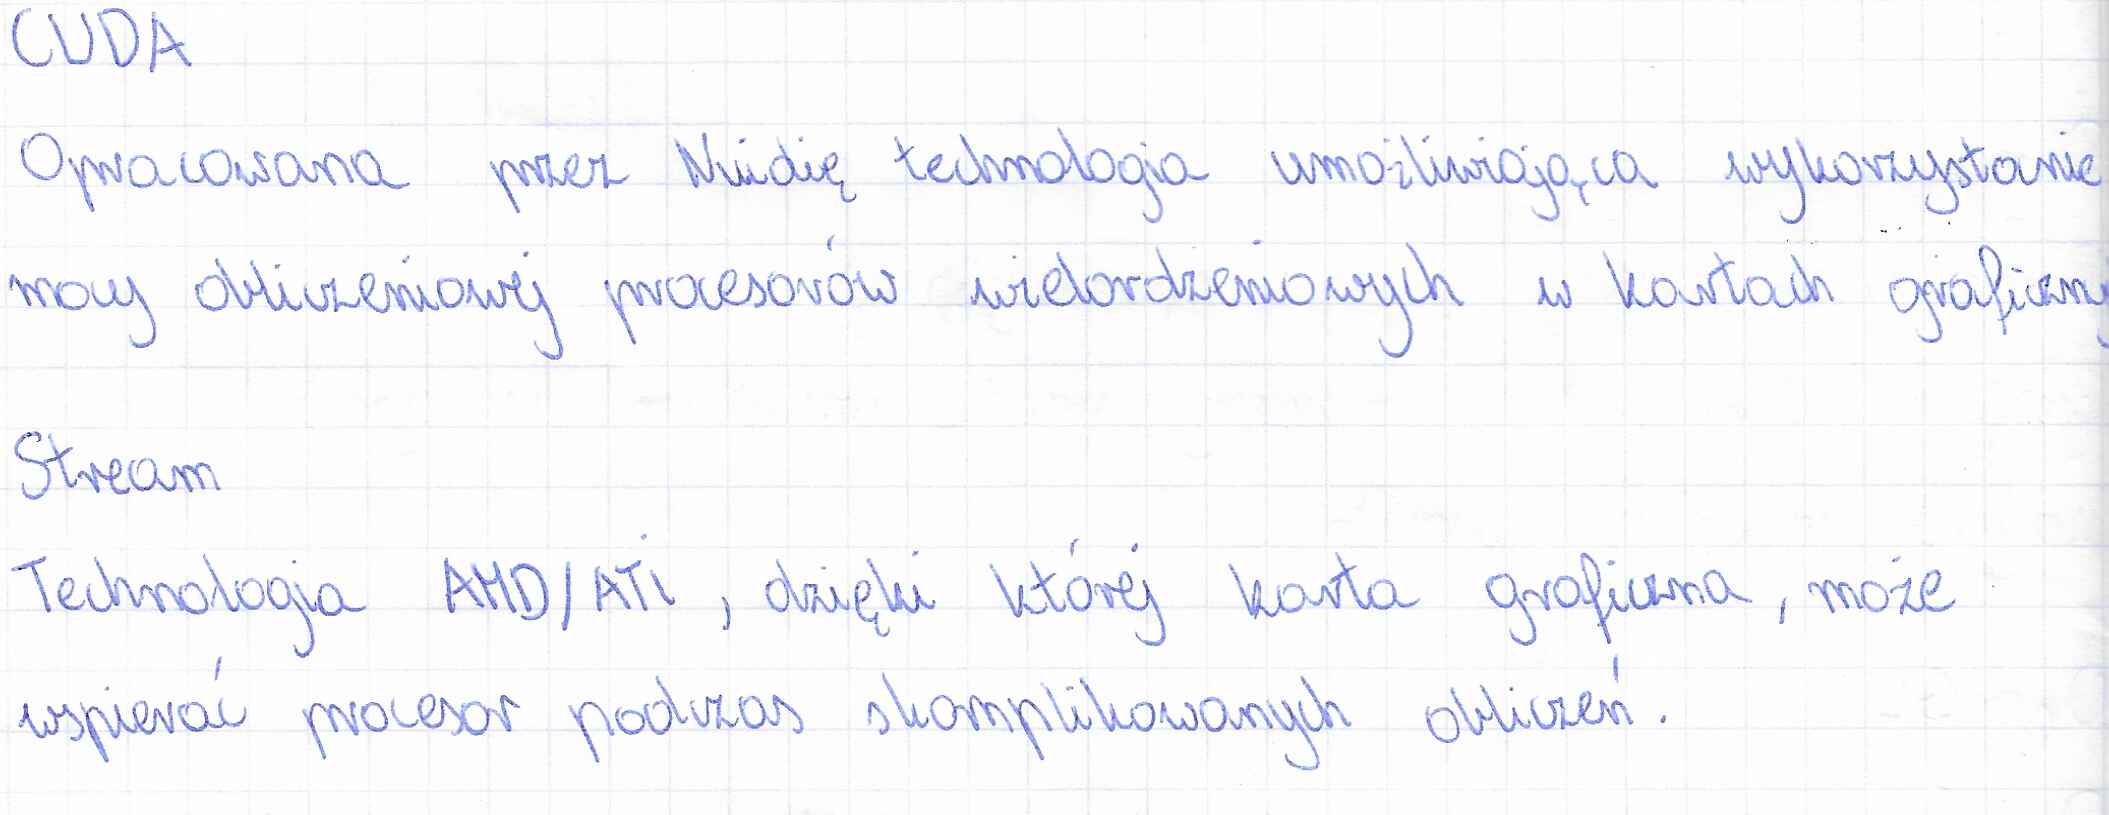 CUDA
Opracowana przez Nvidię technologia umożliwiająca wykorzystanie
mocy obliczeniowej procesorów wielordzeniowych w kartach graficzny
Stream
Technologia AMD/ATi, dzięki której karta graficzna, może
wspierać procesor podczas skomplikowanych obliczeń.